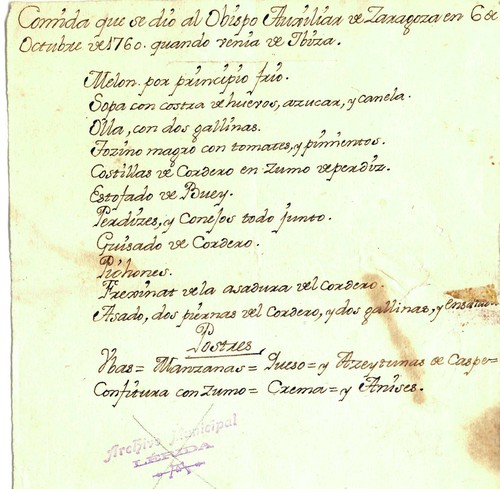 Comida que se dio al Obispo Auxiliar de Zaragoza en 6 de
Octubre de 1760. quando venia de Ibiza.
Melon por principio frio.
Sopa con costra de huevos, azucar, y canela.
Olla, con dos gallinas.
Tozino magro con tomates, y pimientos.
Costillas de Cordero en zumo de perdiz.
Estofado de Buey.
Perdizes, y Conejos todo junto.
Guisado de Cordero.
Pichones.
Frexinat de la asadura del Cordero.
Asado, dos piernas del Cordero, y dos gallinas, y ensalada
Postres
Vbas= Manzanas= Queso= y Azeytunas de Caspe=
Confitura con zumo= Crema= y Anises.
Archivo Municipal